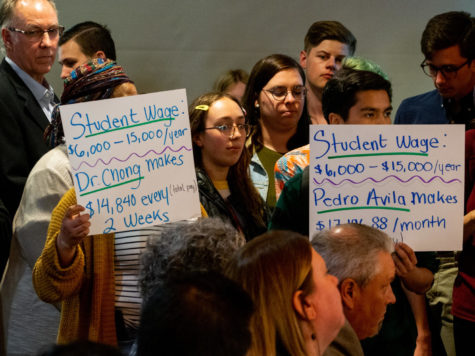 Student Wage:
$6,000 - 15,000/year
Dr. Chong makes
$14,840 every (total pay)
2 Weeks
Student Wage:
$6,000 - $15,000/year
Pedro Avila makes
/month